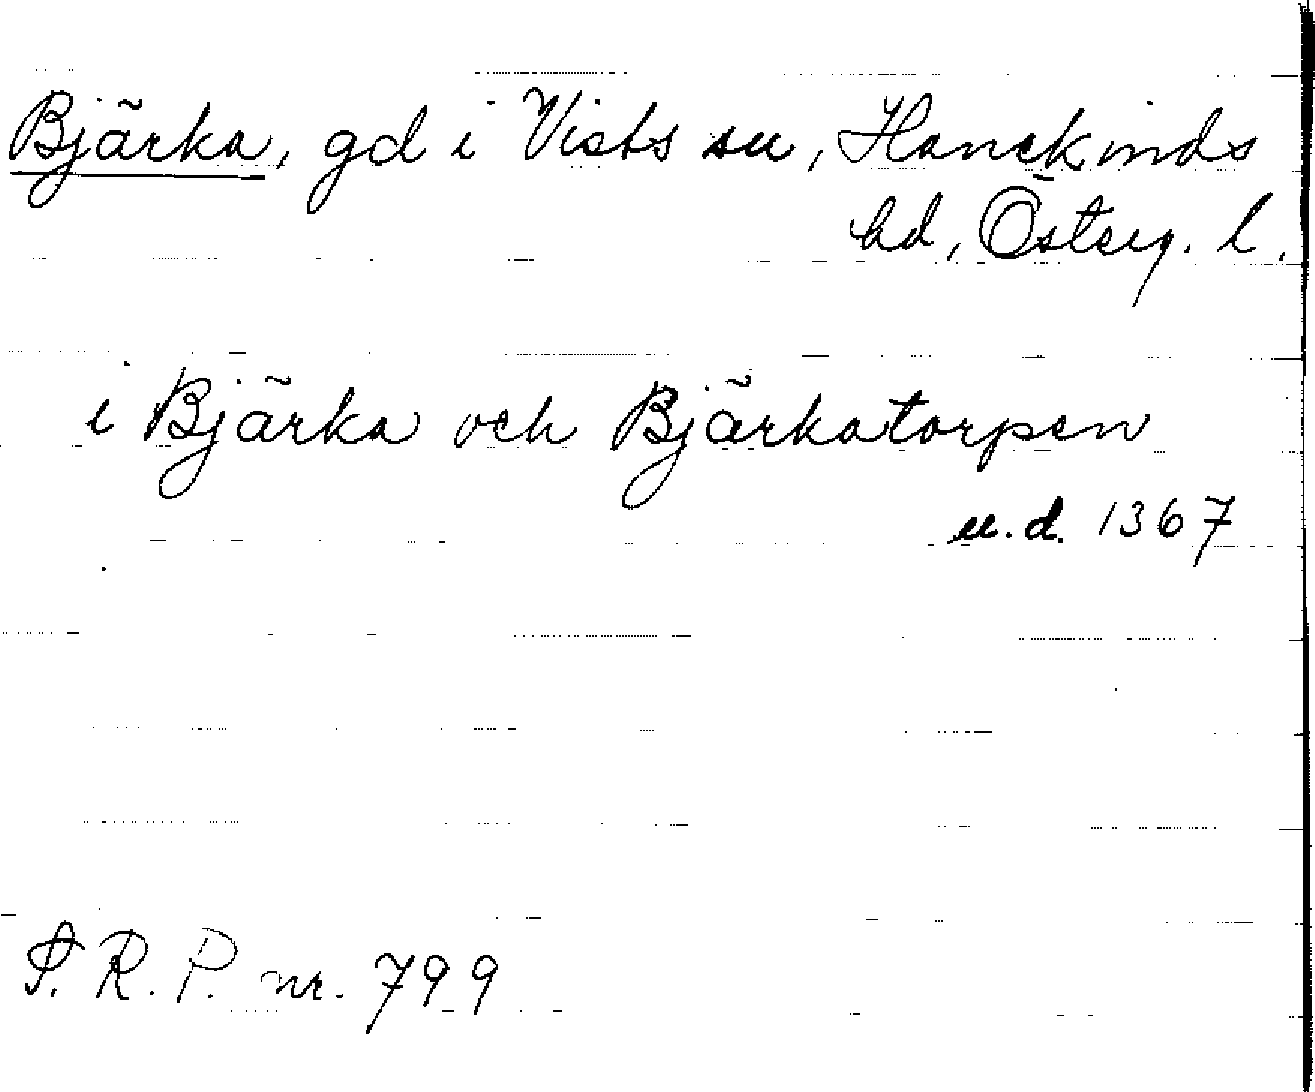 Bjärka, gd i Vists sn, Hanekinds
hd, Österg. l.
i Bjärka och Bjärkatorpen
u.d. 1367
S.R.P. nr. 799